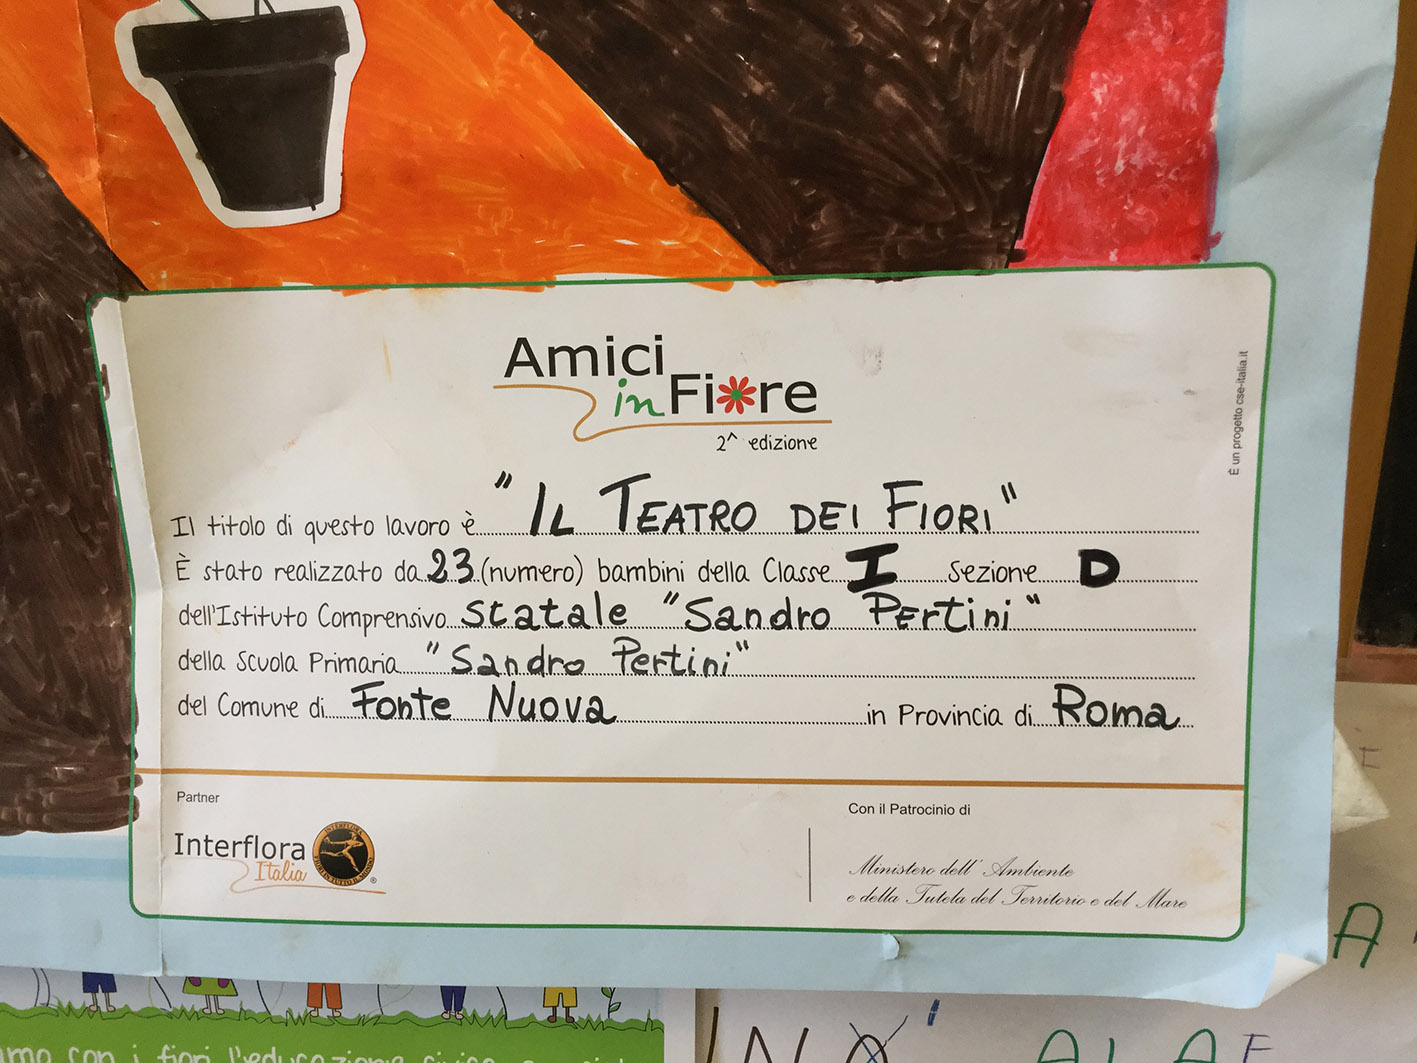 Amici
in Fiore
2^ edizione
È un progetto cse-italia.it
Il titolo di questo lavoro è "IL TEATRO DEI FIORI"
È stato realizzato da 23 (numero) bambini della Classe I Sezione D
dell'Istituto Comprensivo statale "Sandro Pertini"
della Scuola Primaria "Sandro Pertini"
del Comune di Fonte Nuova in Provincia di Roma
Partner
Con il Patrocinio di
Interflora
Italia
Ministero dell' Ambiente
e della Tutela del Territorio e del Mare
con i fiori l'educazione civica
A